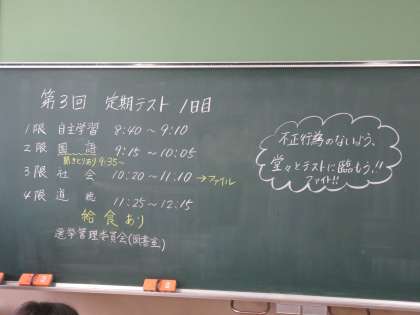 第3回 定期テスト 1日目
1限 自主学習 8:40～9:10
2限 国語 9:15～10:05
聞きとりあり 9:35～
3限 社会 10:20～11:10 →ファイル
4限 道徳 11:25～12:15
給食あり
選挙管理委員会(図書室)
不正行為のないよう、
堂々とテストに臨もう!!
ファイト!!